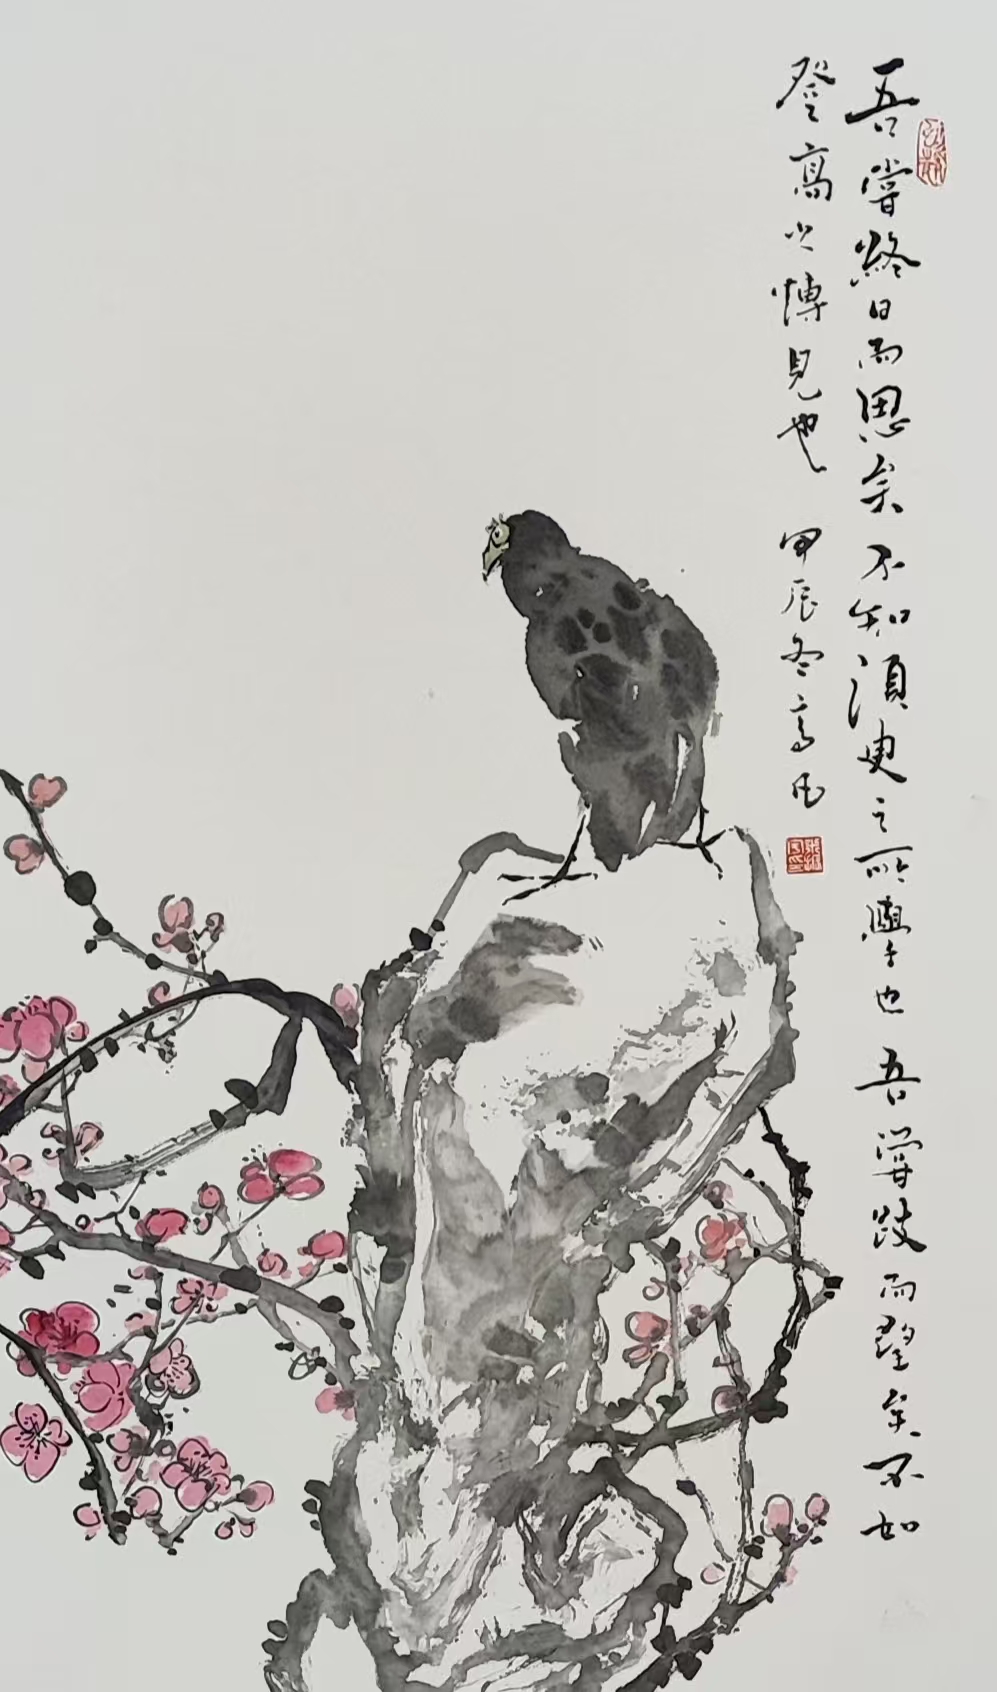 吾嘗終日而思矣不知湏臾之所學也吾嘗跂而望矣不如
登高之愽見也 甲辰冬